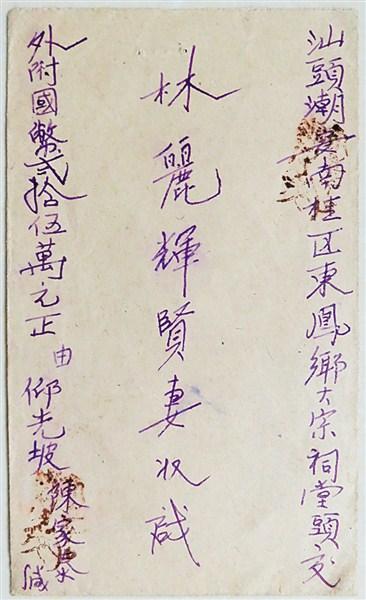 汕頭潮安南桂区東鳳鄉大宗祠堂頭交
林麗輝賢妻收啟
外附國幣貳拾伍萬元正 由 叻光坡 陳家